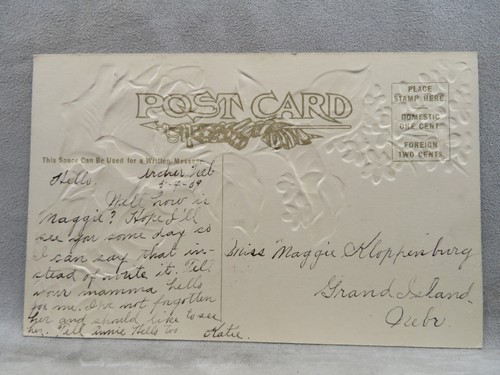 POST CARD
PLACE
STAMP HERE
DOMESTIC
ONE CENT
FOREIGN
TWO CENTS
This Space Can Be Used for a Written Message
Archer Neb
Hello, 5-4-09
Well how is
Maggie? Hope I'll
see you some day so
I can say that in-
stead of write it. Tell
your mamma hello
for me. I've not forgotten
her and should like to see
her. Tell Annie Hello too
Katie.
Miss Maggie Kloppenburg
Grand Island
Nebr